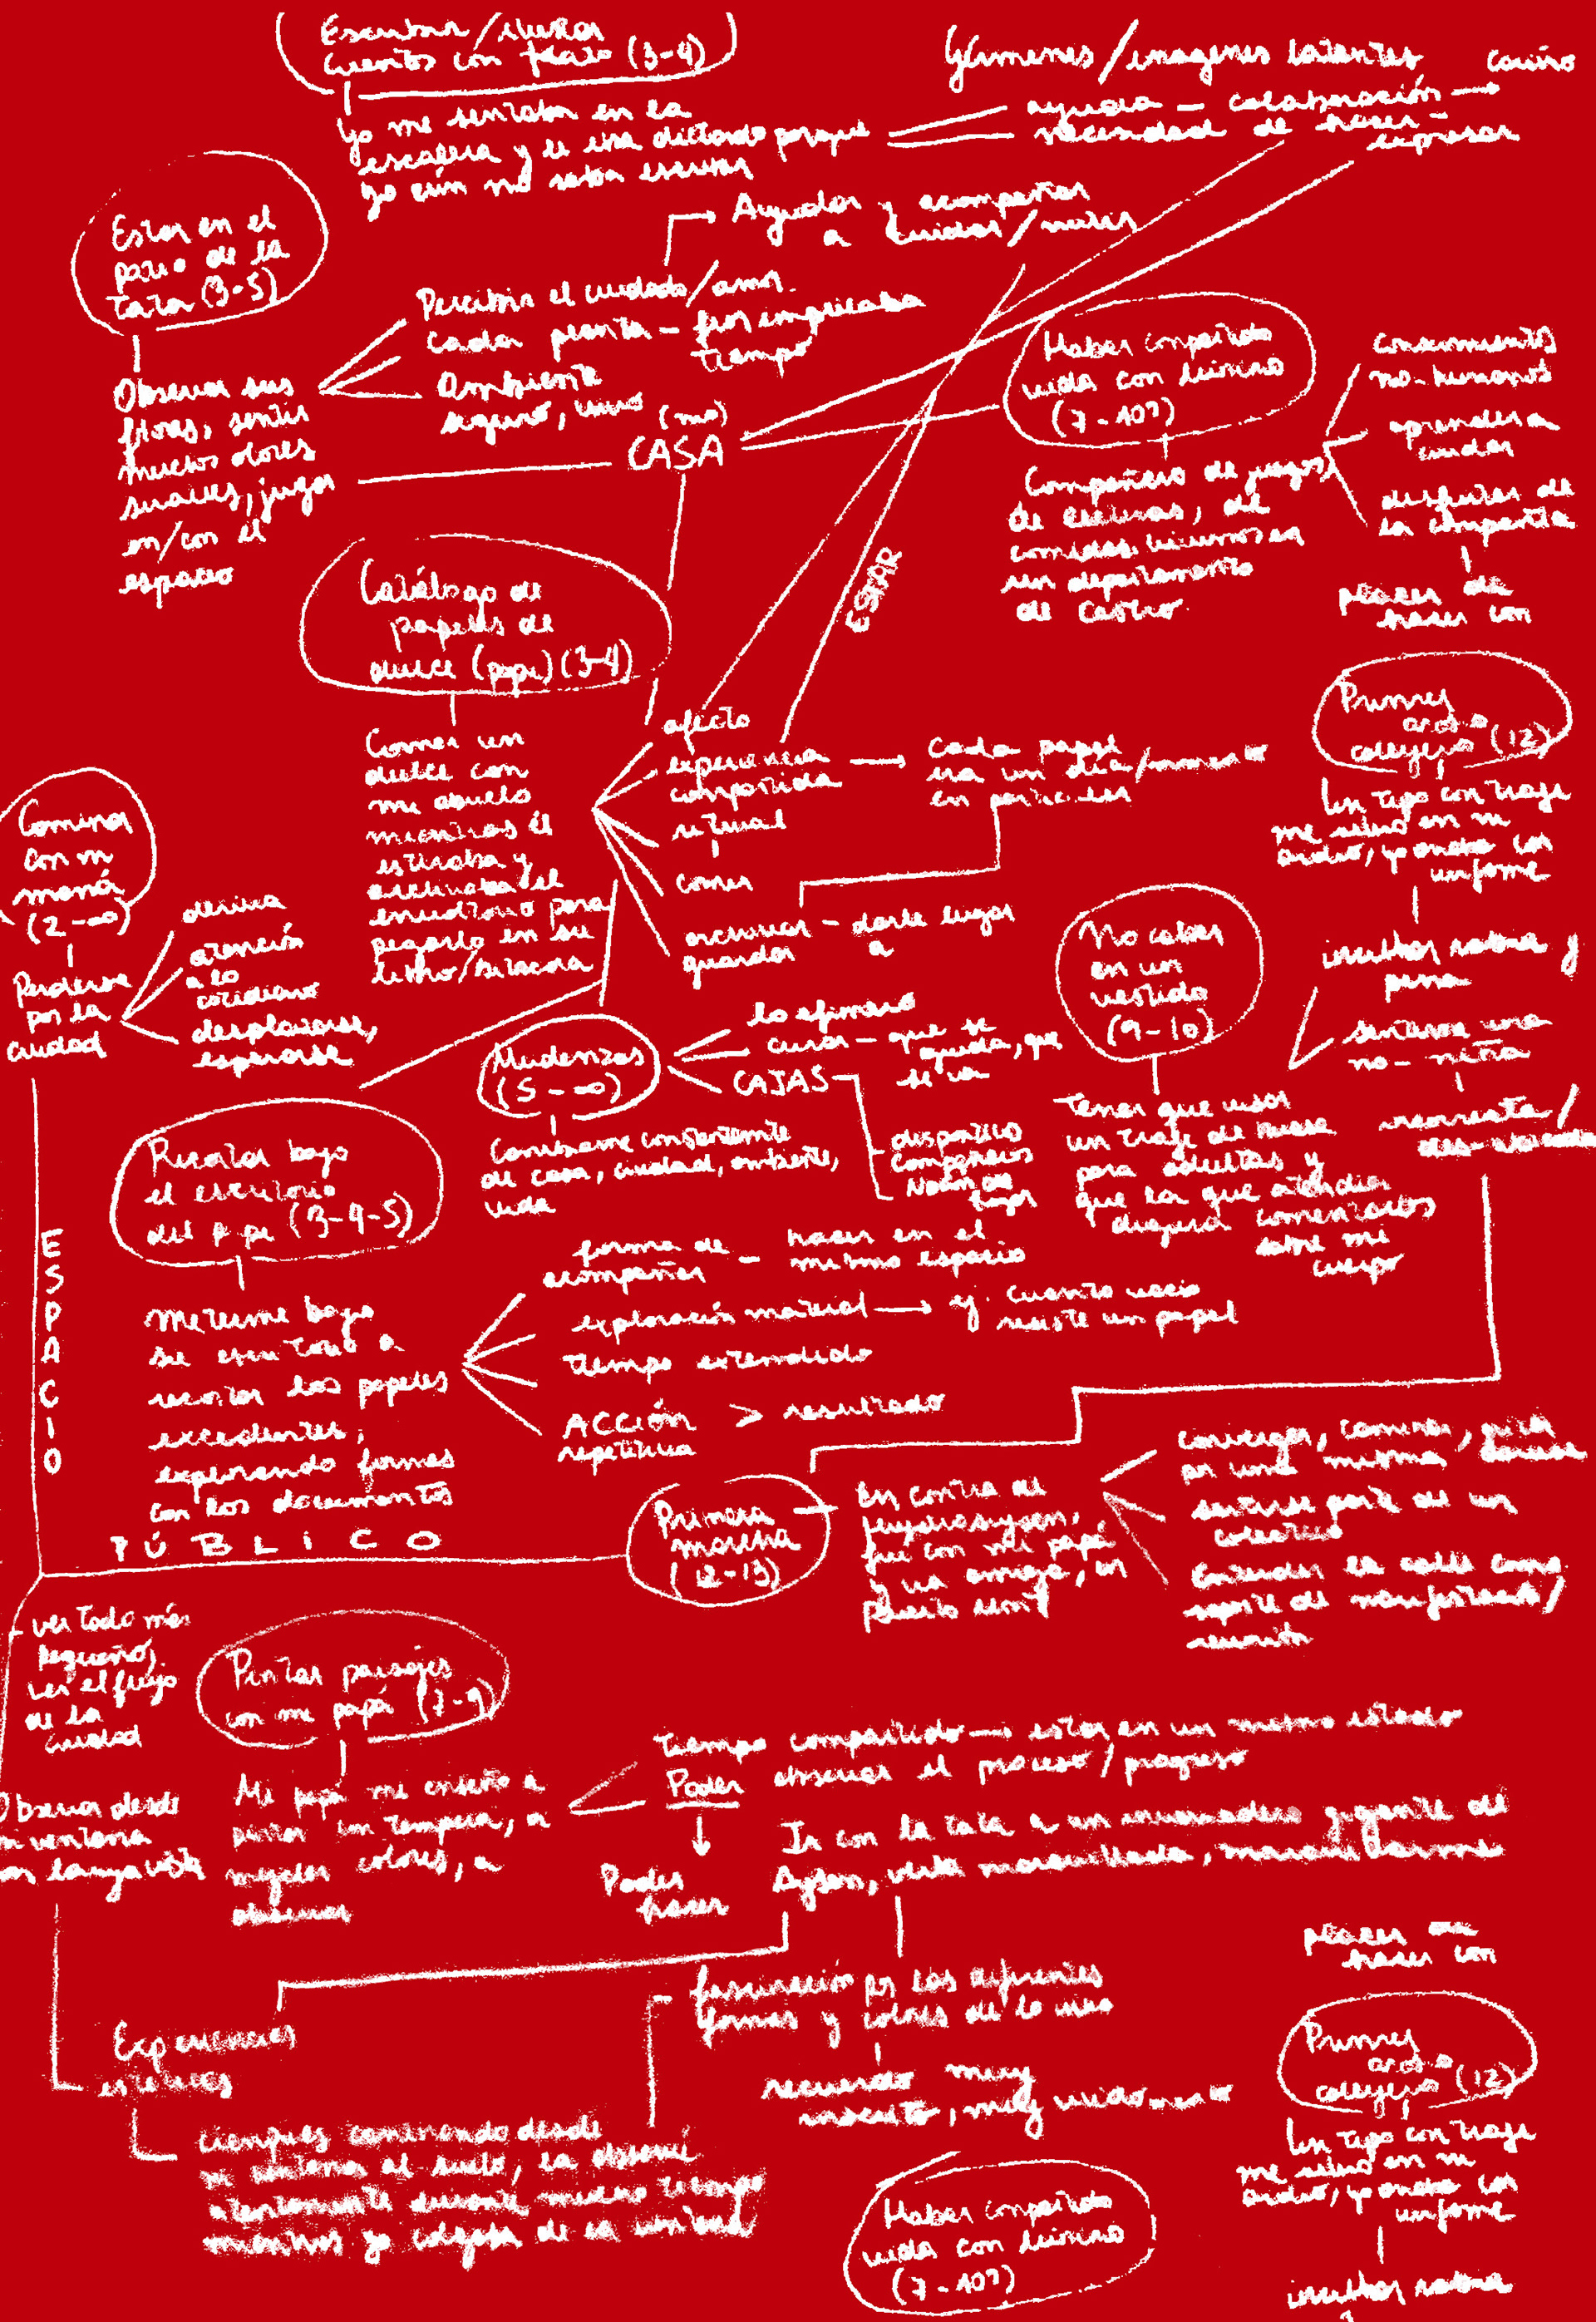 Escribir/
cuentos con (3-4)
yo me sentaba en la
escalera y le iba dictando porque
yo aún no sabía escribir
Gérmenes/imagenes latentes
cariño
ayuda — colaboración →
necesidad de hacer -
expresar
Estar en el
patio de la
Tata (3-5)
Observar sus
flores, sentir
muchos olores
suaves, jugar
en/con el
espacio
→ Ayudar y acompañar
a cuidar/
Percibir el cuidado/amor
cada planta —
tiempo
Ambiente
seguro, vivo
(mo)
CASA
Haber compartido
vida con
(7-10?)
Compañero de juegos,
de de
comidas. vivimos en
un departamento
de Castro
conocimientos
no-humanos
aprender a
cuidar
disfrutar de
la compañía
placer de
hacer con
ESTAR
Catálogo de
papeles de
dulce (pepe) (3-4)
Comer un
dulce con
mi abuelo
mientras él
estiraba y
el
envoltorio para
pegarlo en su
libro/bitácora
afecto
experiencia → cada papel
compartida era un día/momento
en particular
ritual
comer
archivar — darle lugar
guardar a
Primer
acoso
callejero (12)
Un tipo con traje
me en mi
, yo andaba con
uniforme
mucha rabia y
pena
sentirme una
no-niña
Caminar
con mi
mamá
(2-∞)
Perderse
por la
ciudad
deriva
atención
a lo
cotidiano
desplazarse,
esperarse
No caber
en un
vestido
(9-10)
Tener que usar
un traje de
para adultas y
que la que atendía
dijera comentarios
sobre mi
cuerpo
Mudanzas
(5-∞)
Cambiarme constantemente
de casa, ciudad, ambiente,
vida
lo efímero
— que se
queda, que
se va
CAJAS
dispositivo
Recortar bajo
el escritorio
del pepe (3-4-5)
meterme bajo
su escritorio a
recortar los papeles
excedentes,
explorando formas
con los documentos
forma de — hacer en el
acompañar mismo espacio
exploración material → ej. cuánto vacío
resiste un papel
tiempo extendido
ACCIÓN > resultado
repetitiva
ESPACIO
PÚBLICO
Primera
marcha
(12-13)
En contra de
Hydroaysén,
fui con mi papá
y una amiga, en
Puerto Montt
converger, caminar,
por una misma
sentirse parte de un
colectivo
Entender la calle como
soporte de manifestación/
- ver todo más
pequeño,
ver el flujo
de la
ciudad
Observar desde
mi ventana
con larga vista
Pintar paisajes
con mi papá (7-9)
Mi papá me enseñó a
pintar con tempera, a
mezclar colores, a
observar
tiempo compartido → estar en un mismo estado
Poder observar el proceso/progreso
↓
Poder
hacer
Ir con la tata a un invernadero gigante de
Aysén, verla maravillada, maravillarme
Experiencias
estéticas
- fascinación por las diferentes
formas y colores de lo vivo
recuerdo muy
, muy
ciempiés caminando desde
mi ventana al suelo, la observé
atentamente durante mucho tiempo
mientras yo colgaba de la ventana
placer de
hacer con
Primer
acoso
callejero (12)
Un tipo con traje
me en mi
, yo andaba con
uniforme
mucha rabia
Haber compartido
vida con
(7-10?)